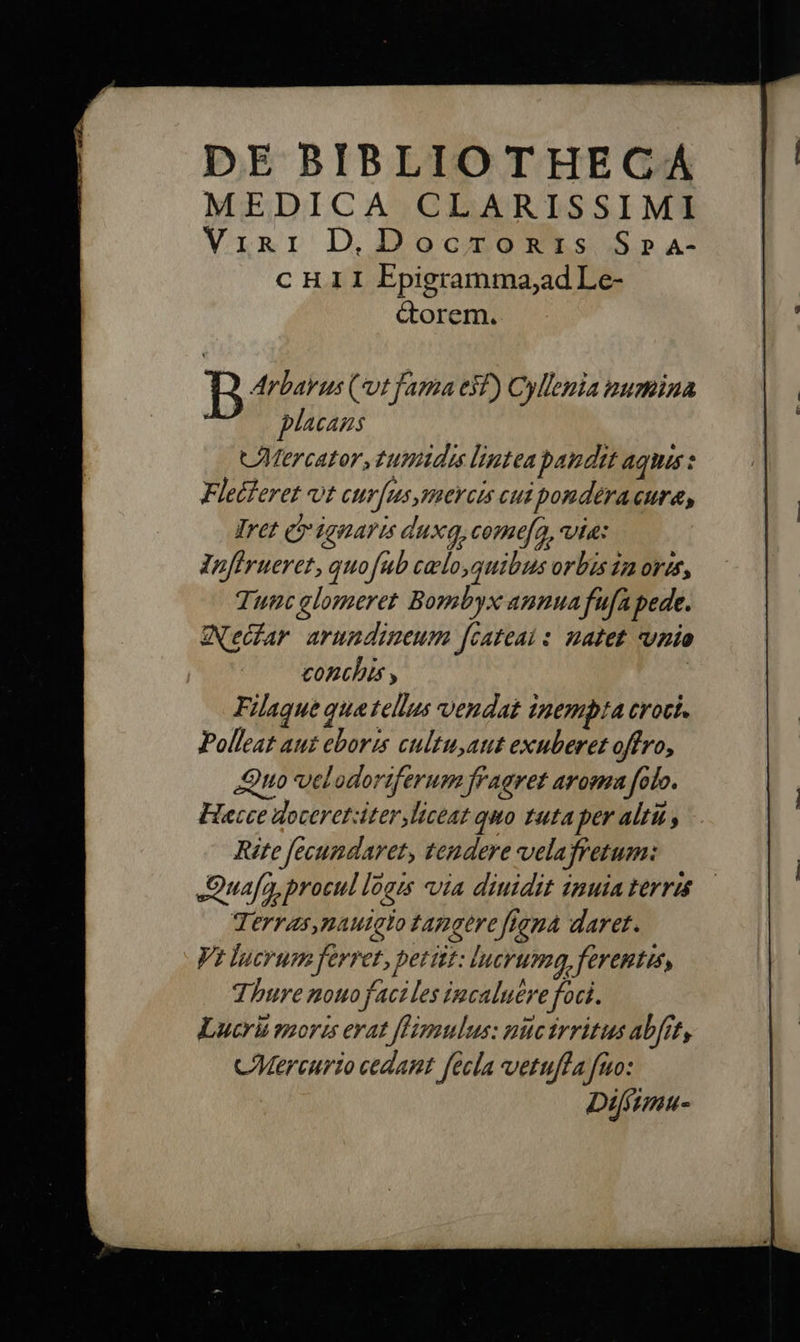 DE BIBLIOTHECA
MEDICA CLARISSIMI
VIRI D. DOCTORIS SPA-
CHII Epigramma,ad Le-
ctorem.
BArbarus (vt fama est) Cyllenia numina
placans
Mercator, tumidis lintea pandit aquis:
Flecteret vt cursus,mercis cui pondera curę,
Iret & ignaris duxq́, comesq́, vię:
Instrueret, quo sub cælo,quibus orbis in oris,
Tunc glomeret Bombyx annua fusa pede.
Nectar arundineum scateat: natet vnio
conchis,
Filaque quę tellus vendat inempta croci.
Polleat aut eboris cultu,aut exuberet ostro,
Quo vel odoriferum fragret aroma solo.
Hæcce doceret:iter,liceat quo tuta per altū,
Rite secundaret, tendere vela fretum:
Quasq́, procul lōgis via diuidit inuia terris
Terras,nauigio tangere signa daret.
Vt lucrum ferret, petiit: lucrumq́, ferentis,
Thure nouo faciles incaluêre foci.
Lucrū moris erat stimulus: nūc irritus absit,
Mercurio cedant secla vetusta suo:
Dissimu-